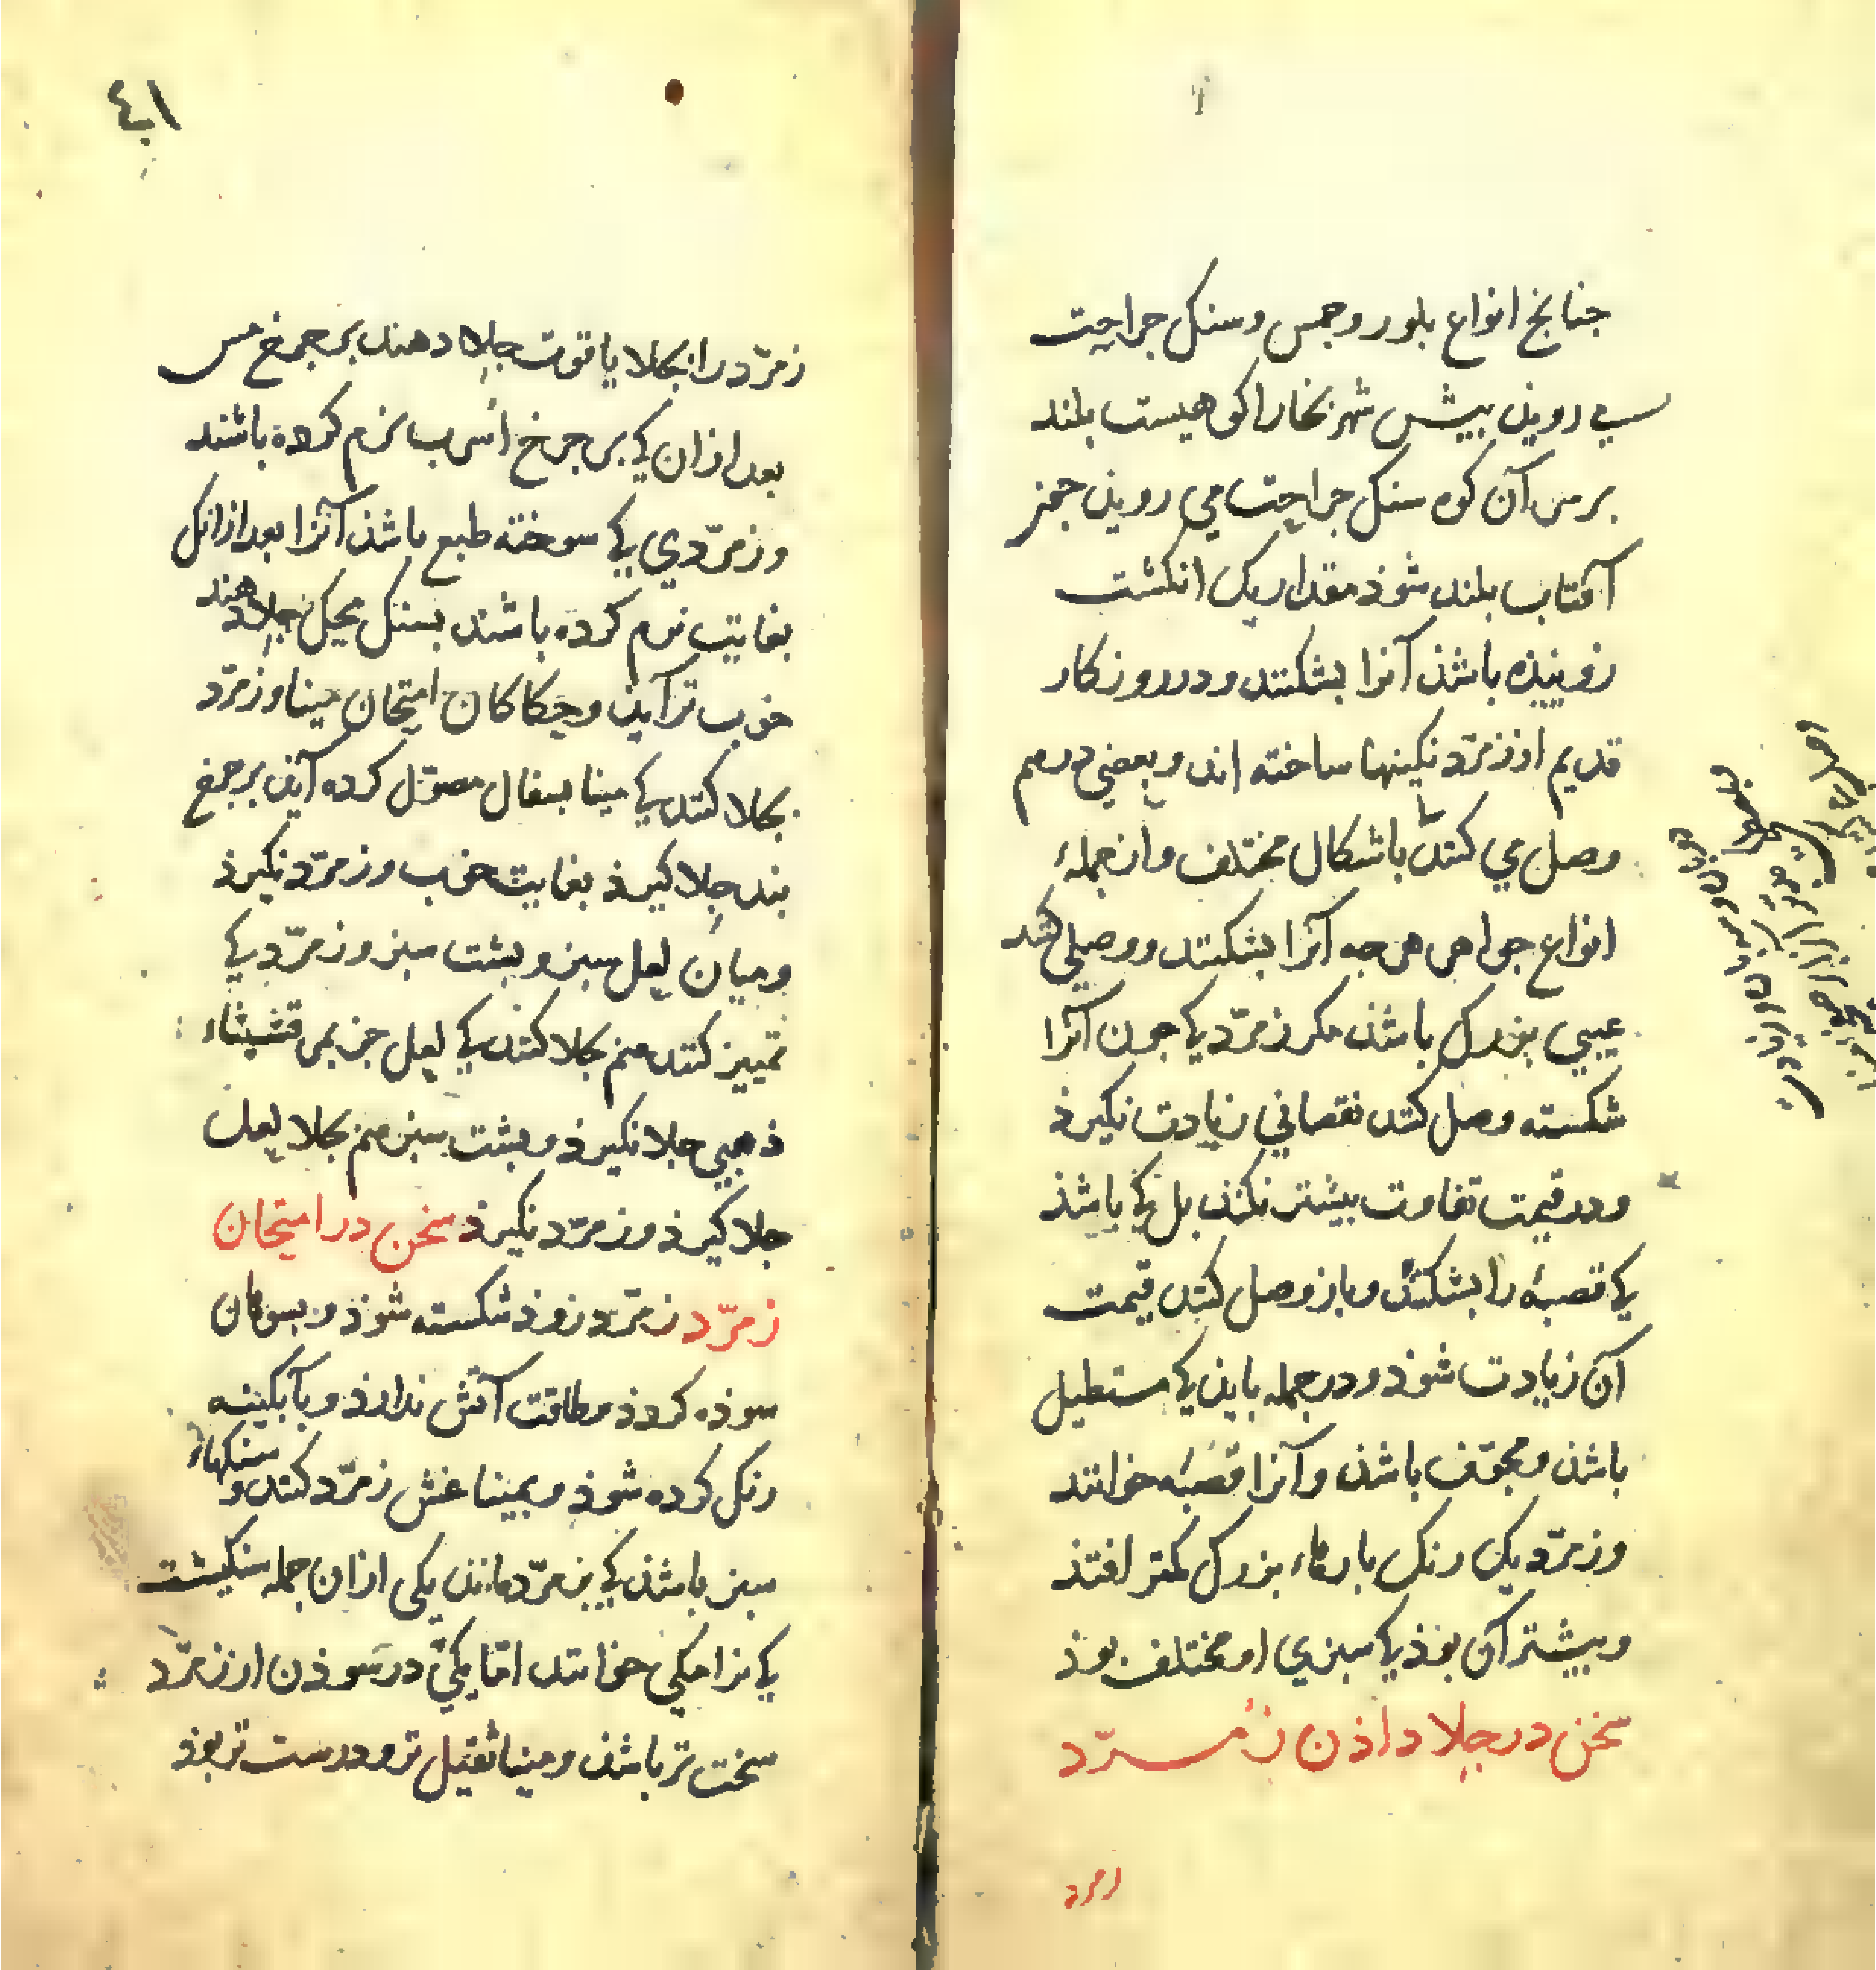 جنانج انواع بلور وجمس وسنك جراحت
می رویذ بیش شهر بخارا کوهیست بلند
برسر آن کوه سنك جراحت می رویذ جمز
آفتاب بلند شوذ مقدار یك انكشت
روینیذه باشذ آنرا بشكنند و درروزكار
قدیم از زمرّد نكینها ساخته اند و بعضی درهم
وصل می كنند باشكال مختلف واز جملهٔ
انواع جواهر هر جه آنرا بشكنند ووصلی كنند
عیبی بزرك باشذ مكر زمرّد كی جون آنرا
شكسته وصل كنند نقصانی زیادت نكیرذ
ودر قیمت تفاوت بیشتر نكنذ بل كی باشذ
كی قصبهٔ را بشكنند وباز وصل كنند قیمت
آن زیادت شوذ و در جمله بایذ كی مستطیل
باشذ ومجوّف باشذ وآنرا قصبه خوانند
وزمرّد یك رنك بارهاء بزرك كمتر افتذ
وبیشتر آن بوذ كی سبزی او مختلف بوذ
سخن در جلا داذن زمرّد
زمرّد
٤١
زمرّد را بجلا یاقوت جلا دهند بر جرخ مس
بعد ازان كی بر جرخ اسرب نرم كرده باشند
وزمرّدی كی سوخته طبع باشذ آنرا بعد ازانك
بغایت نرم كرده باشند بسنك محك جلا دهند
خوب تر آیذ وحكاكان امتحان مینا وزمرّد
بجلا كنند كی مینا بسفال مصوّل كرده آیذ بر جرخ
بند جلا كیرذ بغایت خوب وزمرّد نكیرذ
ومیان لعل سبز وبشت سبز وزمرّد كی
تمییز كنند هم بجلا كنند كی لعل جز بمرقشیثاء
ذهبی جلا نكیرذ وبشت سبز هم بجلا لعل
جلا كیرذ وزمرّد نكیرذ سخن در امتحان
زمرّد زمرّد زوذ شكسته شوذ وبسوهان
سوذه كردذ وطاقت آتش ندارذ وبآبكینه
رنك كرده شوذ وبمینا غش زمرّد كنند و سنكهاء
سبز باشذ كی بزمرّد مانذ یكی ازان جمله سنكیست
كی انرا مكی خوانند امّا مكی در سوذن از زمرّد
سخت تر باشذ ومینا ثقیل تر ودرست تر بوذ